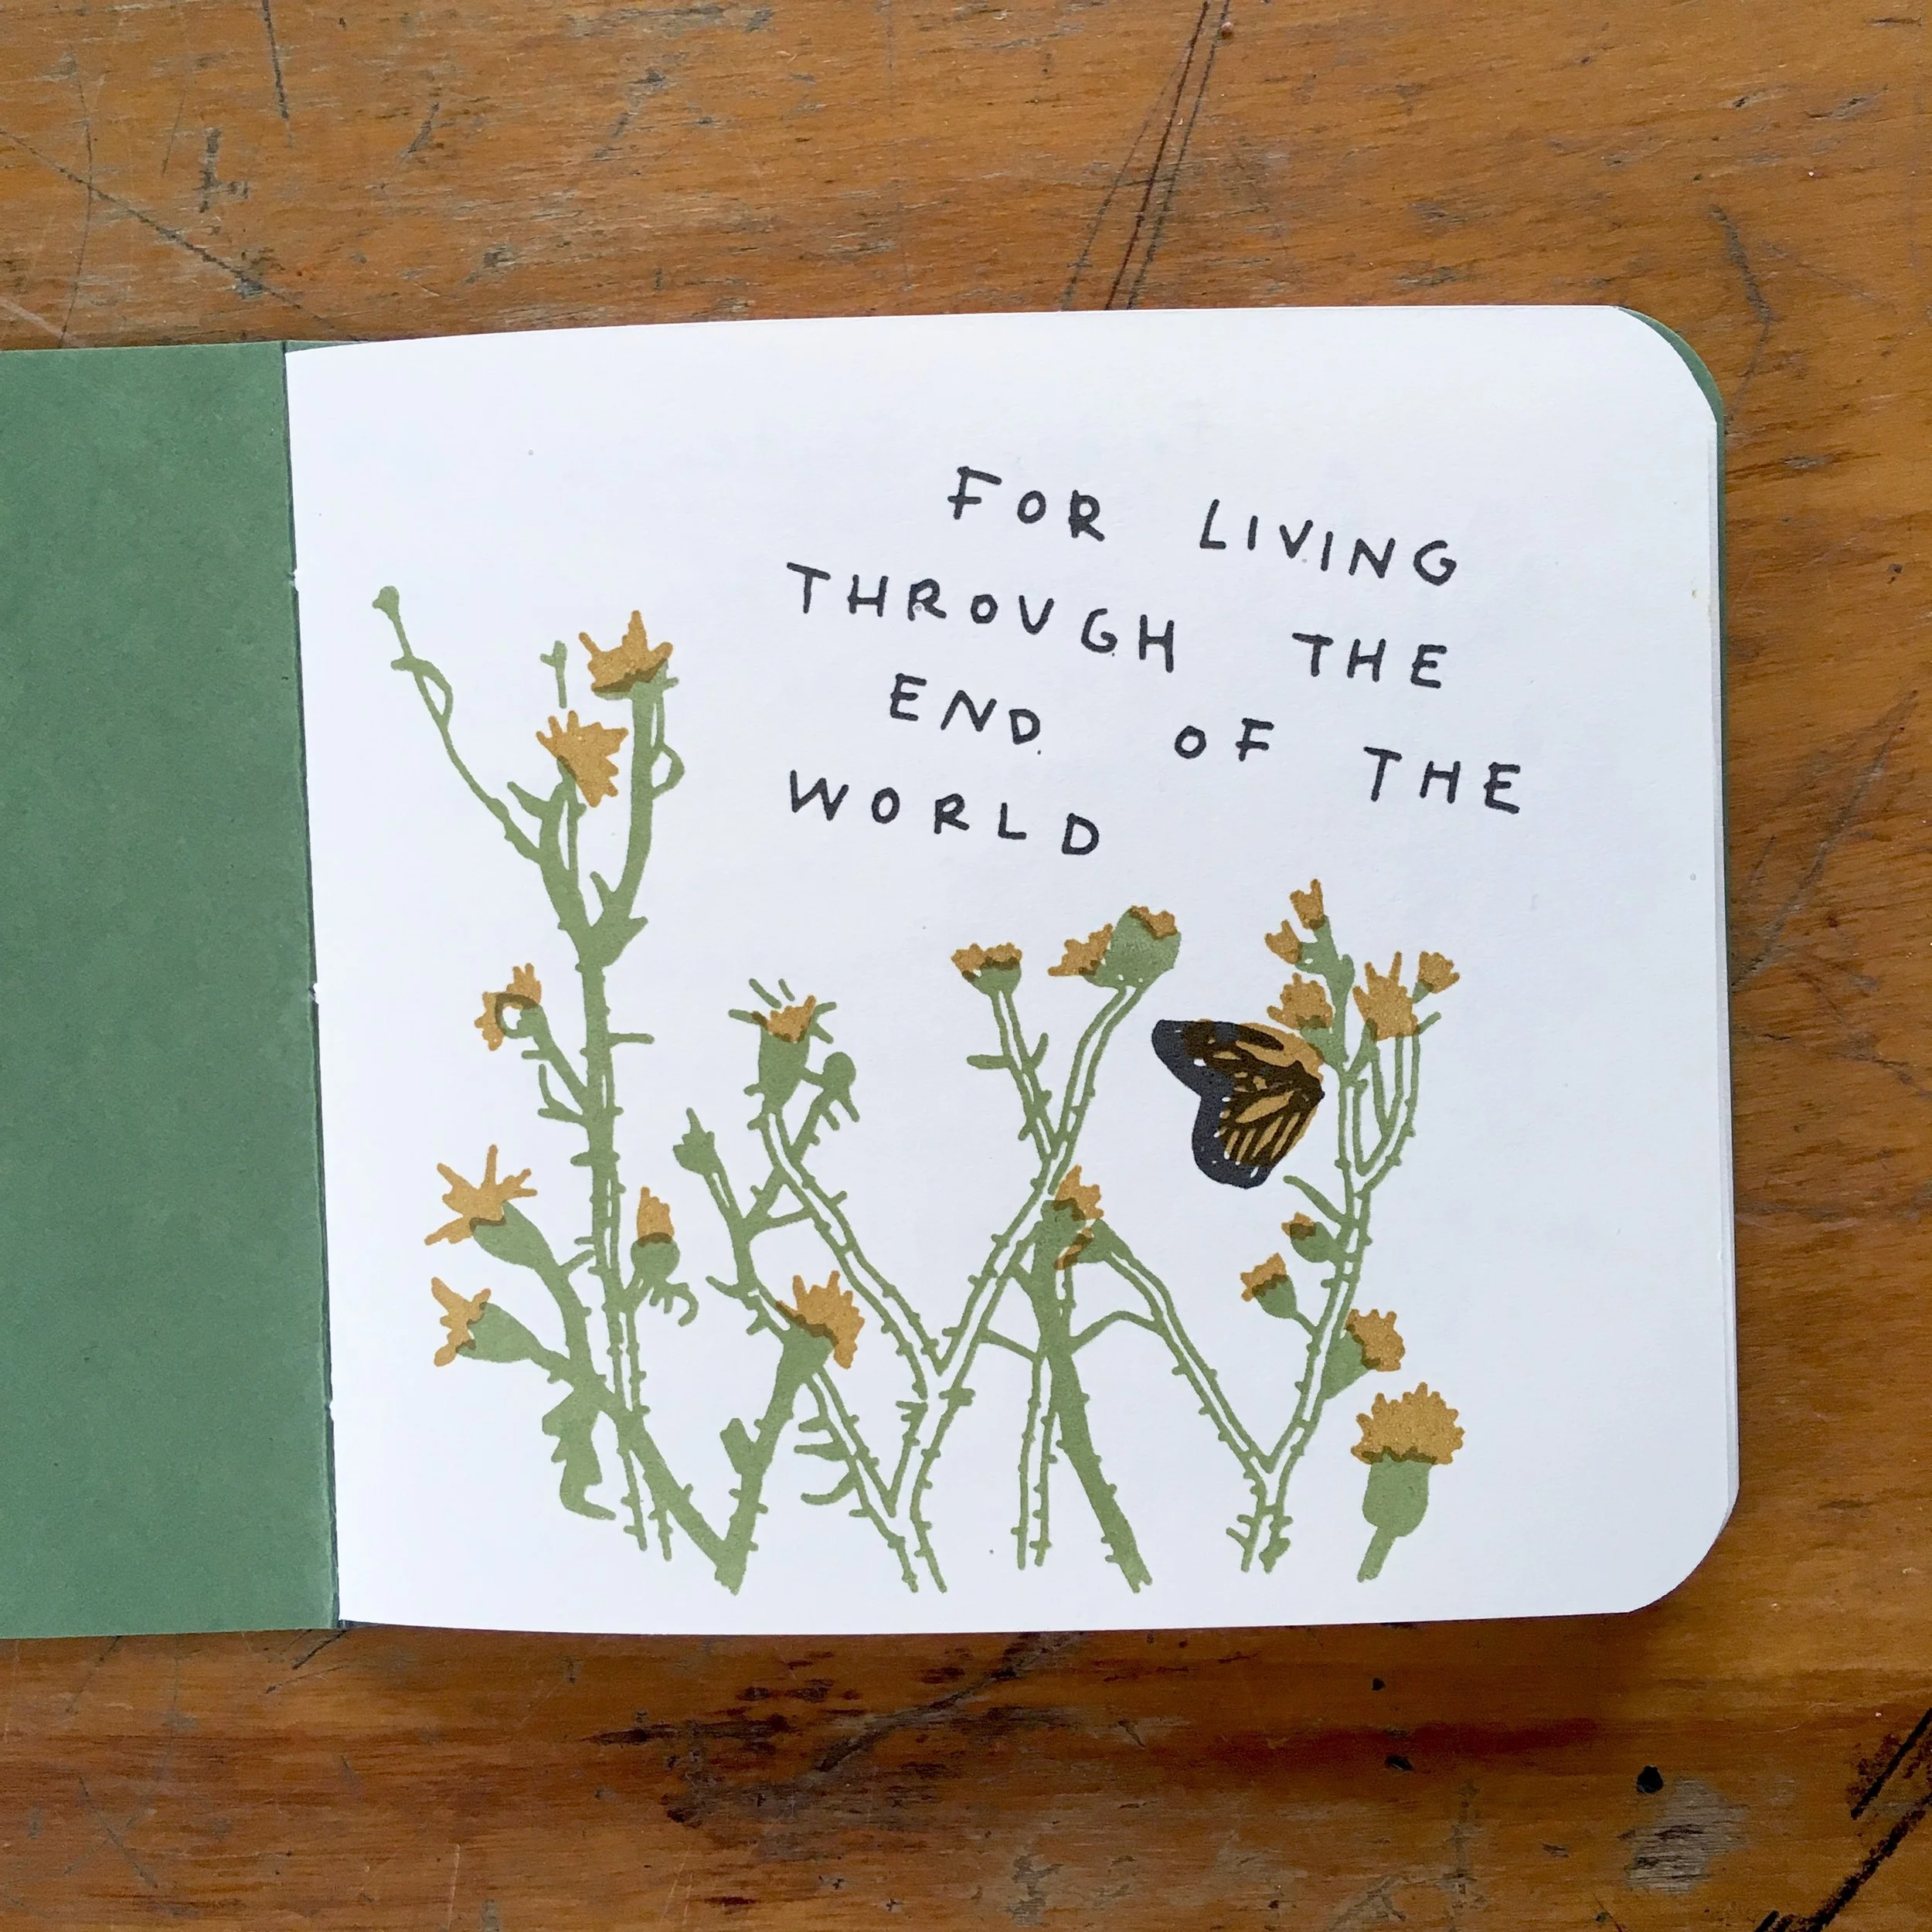 FOR LIVING
THROUGH THE
END OF THE
WORLD